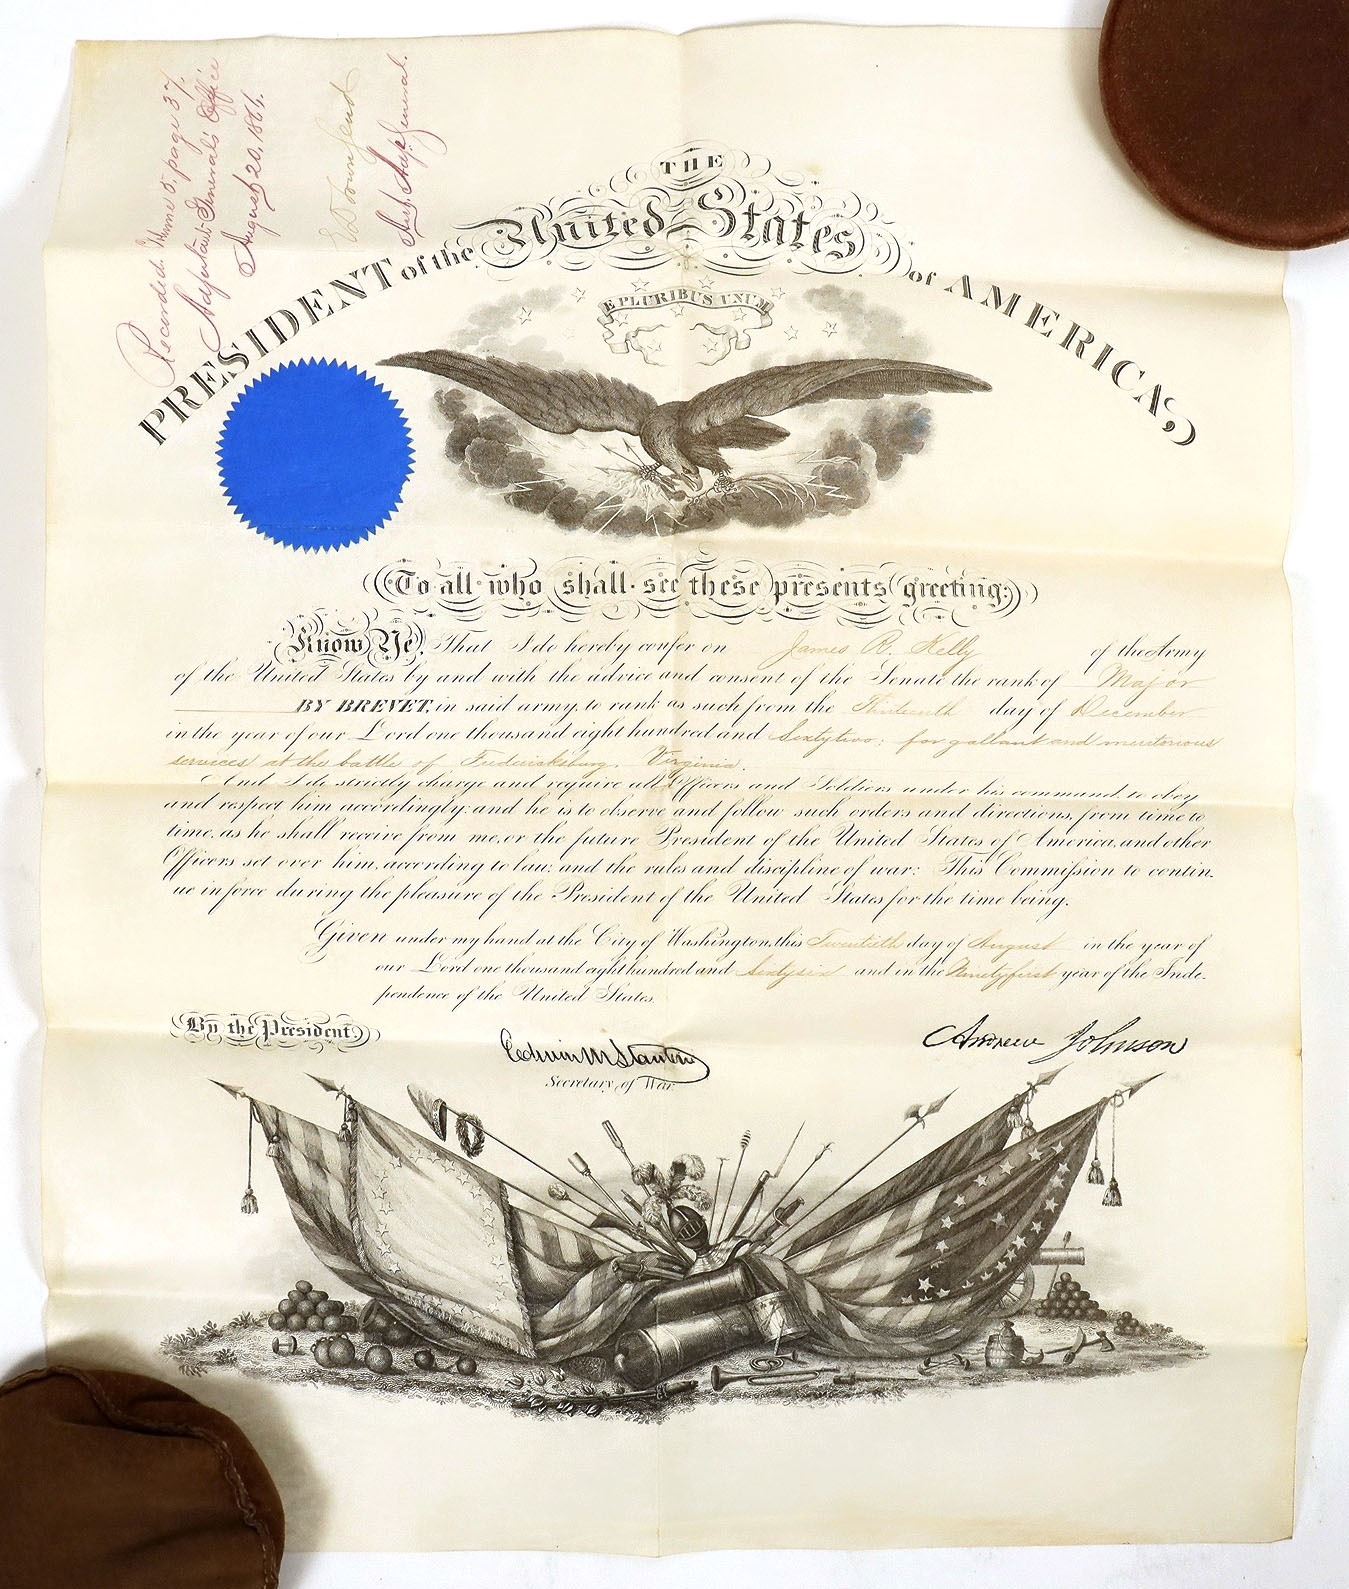 Recorded. Volume 5. page 37.
Adjutant General's Office
August 20, 1866.
E D Townsend
Asst. Adjt. General.
THE
PRESIDENT of the United States of AMERICA
E PLURIBUS UNUM
To all who shall see these presents greeting:
Know Ye, That I do hereby confer on James R. Kelly of the Army
of the United States by and with the advice and consent of the Senate the rank of Major
BY BREVET, in said army, to rank as such from the Thirteenth day of December
in the year of our Lord one thousand eight hundred and Sixty two; for gallant and meritorious
services at the battle of Fredericksburg, Virginia.
And I do strictly charge and require all Officers and Soldiers under his command to obey
and respect him accordingly: and he is to observe and follow such orders and directions, from time to
time, as he shall receive from me, or the future President of the United States of America, and other
Officers set over him, according to law, and the rules and discipline of war: This Commission to contin-
ue in force during the pleasure of the President of the United States for the time being.
Given under my hand at the City of Washington, this Twentieth day of August in the year of
our Lord one thousand eight hundred and Sixty six and in the Ninety first year of the Inde-
pendence of the United States.
By the President,
Andrew Johnson
Edwin M Stanton
Secretary of War.